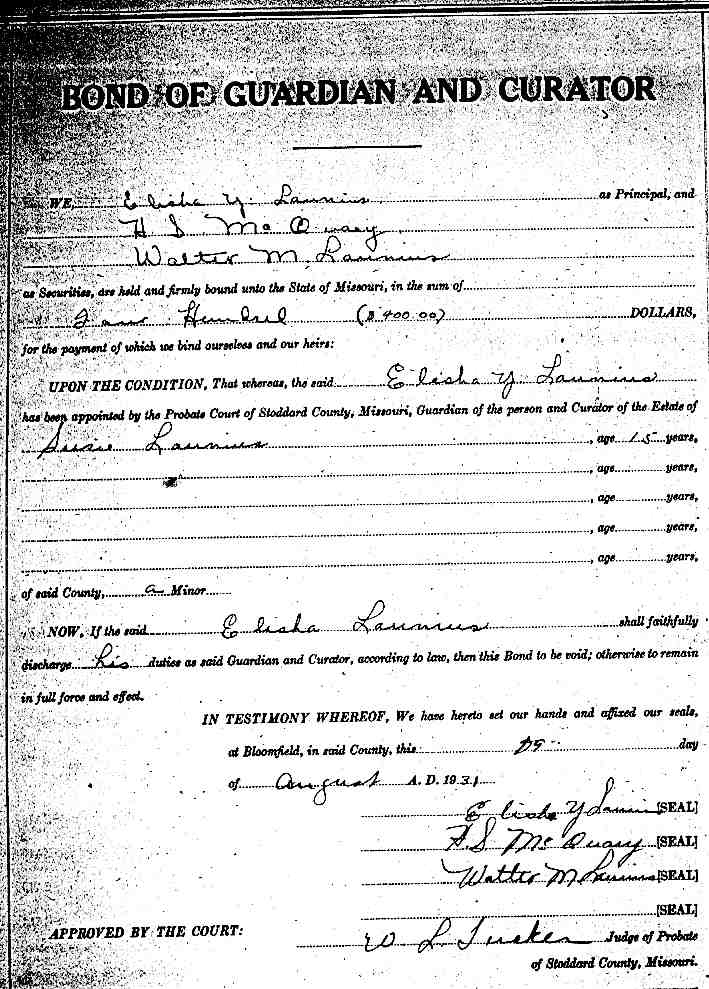 BOND OF GUARDIAN AND CURATOR
WE, Elisha Y. Launius as Principal, and
H S McQuary
Walter M. Launius
as Securities, are held and firmly bound unto the State of Missouri, in the sum of
Four Hundred ($400.00) DOLLARS,
for the payment of which we bind ourselves and our heirs:
UPON THE CONDITION, That whereas, the said Elisha Y Launius
has been appointed by the Probate Court of Stoddard County, Missouri, Guardian of the person and Curator of the Estate of
Susie Launius, age 15 years,
, age years,
, age years,
, age years,
, age years,
of said County, a Minor
NOW, If the said Elisha Launius shall faithfully
discharge his duties as said Guardian and Curator, according to law, then this Bond to be void; otherwise to remain
in full force and effect.
IN TESTIMONY WHEREOF, We have hereto set our hands and affixed our seals,
at Bloomfield, in said County, this day
of August A. D. 1931
Elisha Y Launius [SEAL]
H S McQuary [SEAL]
Walter M Launius [SEAL]
[SEAL]
APPROVED BY THE COURT: W L Tucker Judge of Probate
of Stoddard County, Missouri.